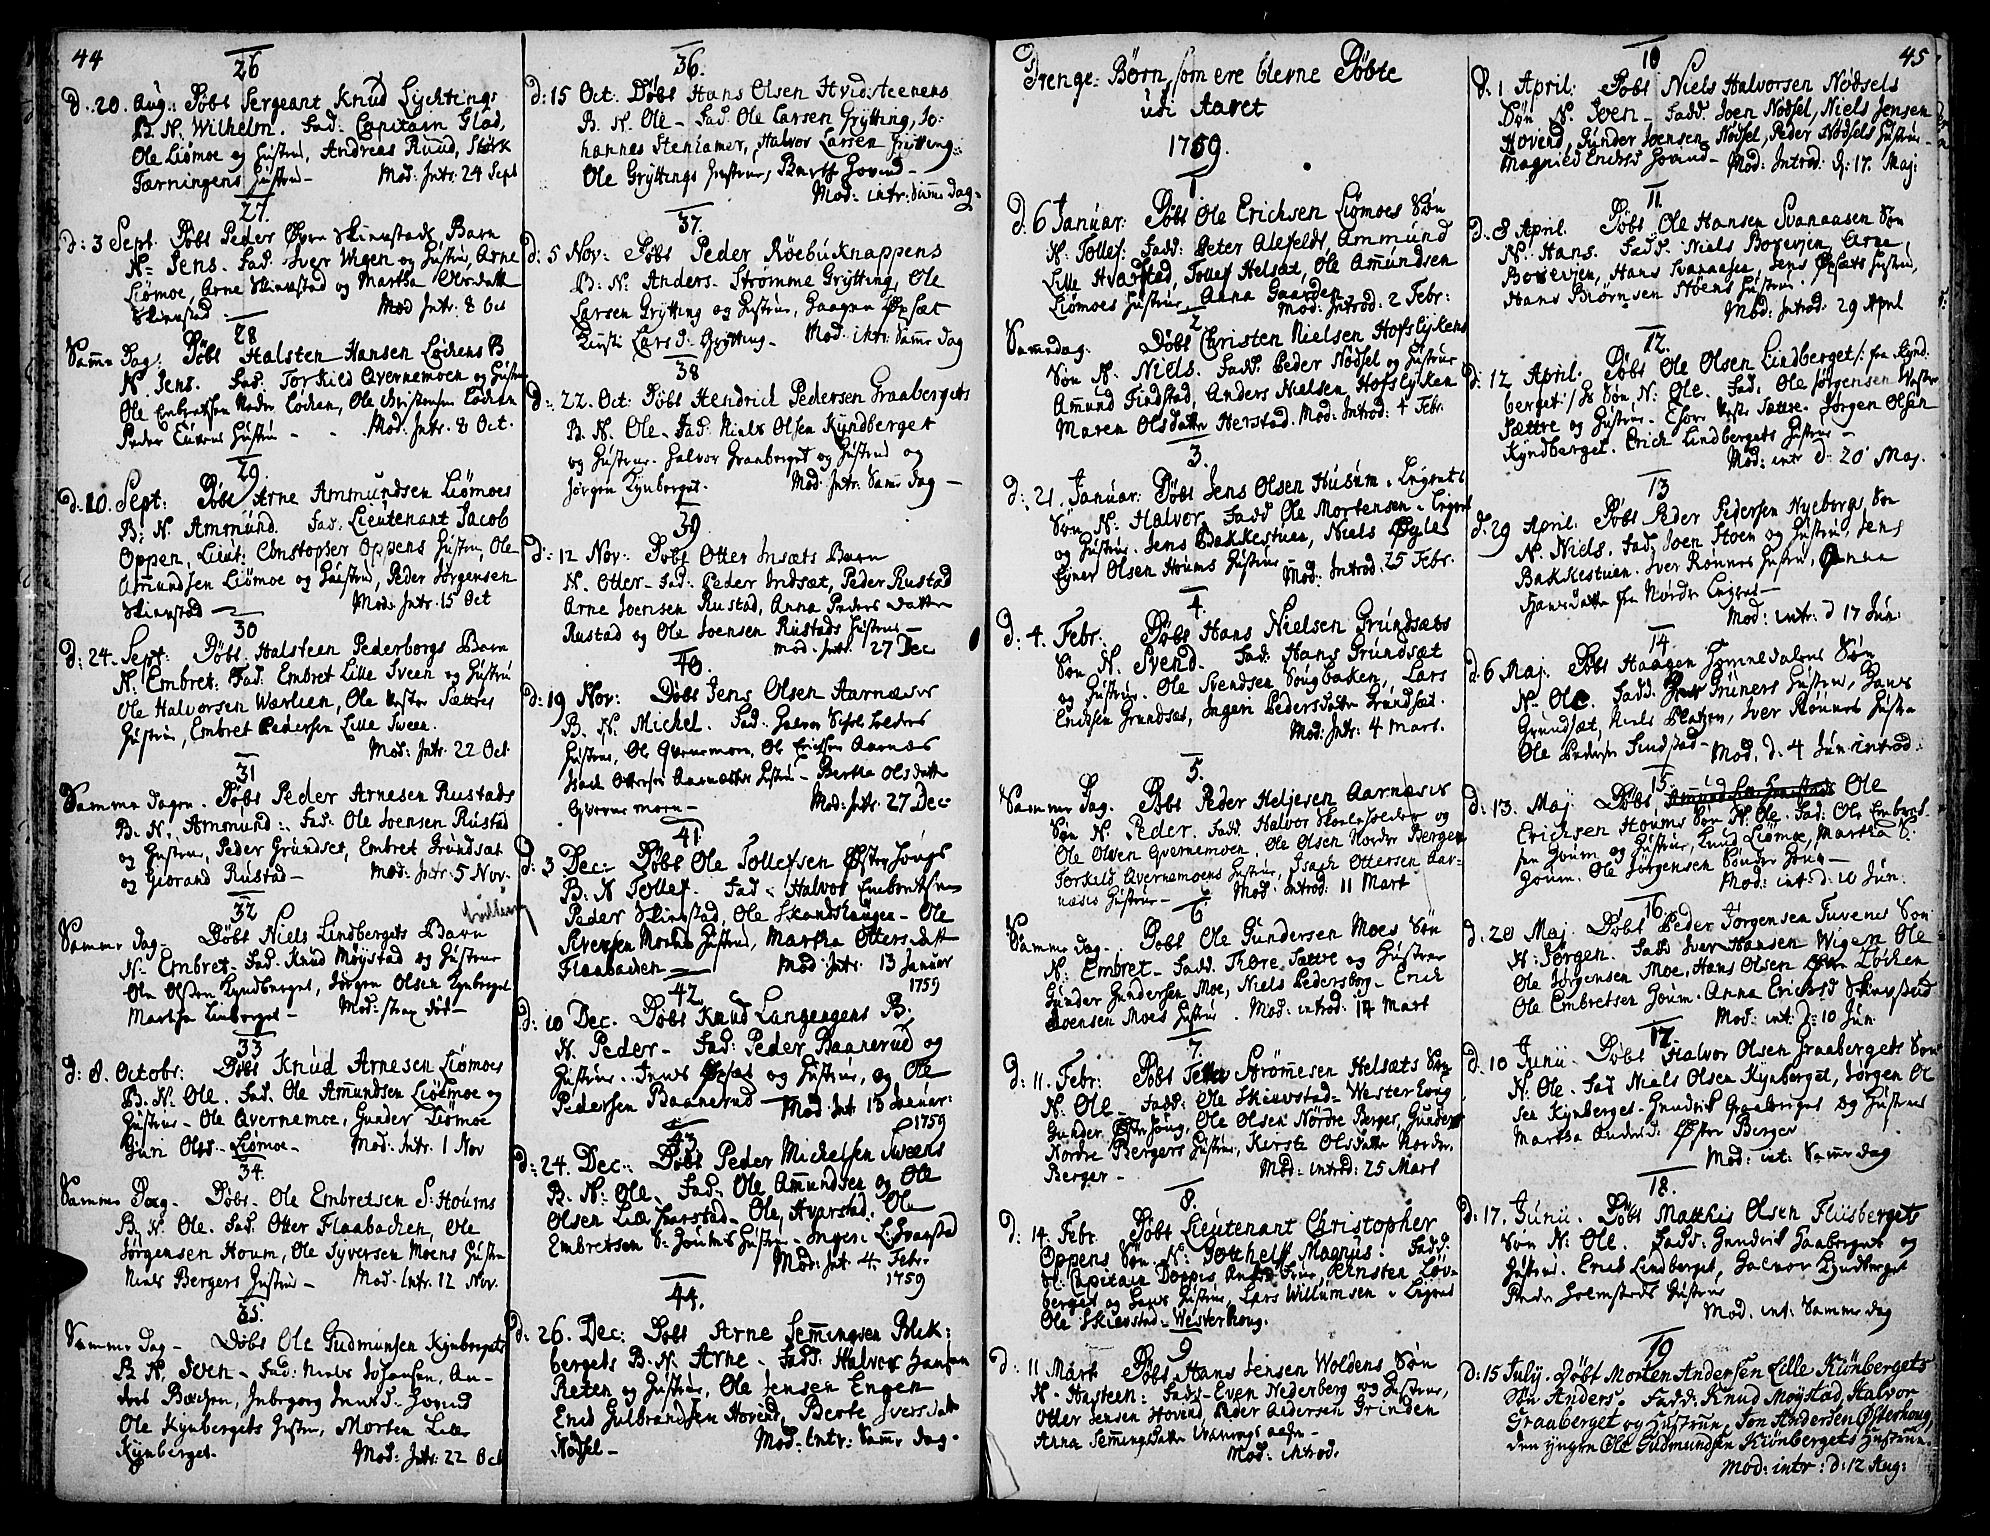 44
26
d: 20. Aug: Døbt Sergeant Knud Lychtings
B. N. Wilhelm. Fad: Capitain Glad,
Ole Liømoe og Hustru, Andreas Ruud, Størk
Tærningens Hustru — Mod: Intr: 24 Sept
27.
d: 3 Sept. Døbt Peder Øvre Skinstads Barn
N: Jens. Fad. Iver Wigen og Hustru, Arne
Liømoe, Arne Skinstad og Martha Olsdatt
Skinstad — Mod Intr: 8 Oct
28
Samme Dag: Døbt Halsten Hansen Løchens B
N. Jens. Fad: Torkild Qvernemoen og Hustru
Ole Embretsen Nedre Løchen, Ole Christensen Løchen
Peder Hustru — Mod: Intr: 8 Oct.
29
d: 10. Sept: Døbt Arne Ammundsen Liømoes
B: N. Ammund. Fad: Lieutenant Jacob
Oppen, Lieut: Christopher Oppens Hustru, Ole
Amundsen Liømoe og Hustru, Peder Jørgensen
Skinstad — Mod: Intr: 15 Oct
30
d: 24. Sept: Døbt Halsteen Pederborgs Barn
N. Embret: Fad: Embret Lille Sveen og Hustru
Ole Halvorsen Wærlien, Ole Vester Sættres
Hustru, Embret Pedersen Lille Sveen.
Mod: Intr: 22 Oct
31
Samme Dagen. Døbt Peder Arnesen Rustads
B. N. Ammund: Fad: Ole Joensen Rustad
og Hustrue, Peder Grundset, Embret Grundsæt
og Giørand Rustad — Mod: Intr: 5 Nov.
32
Samme Dag — Døbt Niels Lindbergets Barn
N. Embret. Fad. Knud Møystad og Hustrue
Ole Olsen Kyndberget, Jørgen Olsen Kynberget
Martha Linberget — Mod: strax død —
33
d: 8. Octobr: Døbt Knud Arnesen Liømoes
B. N. Ole. Fad. Ole Amundsen Liømoe og
Hustrue — Ole Qvernemoe, Gunder Liømoe
Guri Olsd. Liømoe — Mod: Intr: 1 Nov
34.
Samme Dag — Døbt. Ole Embretsen S: Houms
B. N. Ole. Fad. Otter Flaabachen, Ole
Jørgensen Houm, Ole Syversen Moens Hustru
Niels Bergers Hustrue — Mod: Intr. 12 Nov.
35.
Samme Dag — Døbt Ole Gudmunsen Kynbergets
B N. Iven — Fad: Niels Johansen, An-
ders Bachen, Inborg Jensd: Hovind
Ole Kynbergets Hustru, Morten Lille
Kynberget. Mod: Intr: 22 Oct
36.
d: 15 Oct. Døbt Hans Olsen Hvidsteenens
B. N. Ole — Fad. Ole Larsen Grytting, Jo-
hannes Stenlamer, Halvor Larsen Grytting
Ole Gryttings Hustrue, Berthe Hovind —
Mod: intr: Samme dag.
37.
d: 5 Nov: Døbt Peder Røebuknappens
B: N: Anders. Strømme Grytting, Ole
Larsen Grytting og Hustrue, Haagen Opsæt
Kirsti Larsd. Grytting — Mod: intr: Samme dag
38
d: 22. Oct: Døbt Hendrich Pedersen Graabergets
B. N. Ole — Fad: Niels Olsen Kyndberget
og Hustrue. Halvor Graaberget og Hustrue og
Jørgen Kynberget. Mod: Intr: Samme dag —
39
d: 12 Nov: Døbt Otter Insæts Barn
N. Otter — Fad: Peder Indsæt, Peder Rustad
Arne Joensen Rustad, Anna Peders Datter
Rustad og Ole Joensen Rustads Hustrue —
Mod: Intr: 27 Dec
40.
d: 19 Nov: Døbt Jens Olsen Aarnæses
B. N. Michel. Fad: Halvor Schoeleholders
Hustrue, Ole Qvernemoen, Ole Erichsen Aarnæs
Isach Ottersen Aarnæses Hustru — Bertha Olsdatter
Qvernemoen — Mod: Intr: 27 Dec:
41
d: 3 Dec: Døbt Ole Tollefsen Østerhougs
B. N Tollef. Fad: Halvor Embretsen
Peder Skinstad, Ole Skandshaugen — Ole
Siversen Moens Hustrue, Martha Ottersdatt
Flaabachen — Mod: Intr: 13 Januar
1759
42.
d: 10 Dec. Døbt Knud Langengens B:
N. Peder — Fad: Peder Baanerud og
Hustrue. Jens Opsæt og Hustrue, og Ole
Pedersen Baanerud — Mod: Int 13 Januar:
1759
43
d: 24. Dec: Døbt Peder Michelsen Sveens
B. N: Ole — Fad: Ole Amundsen og Ole
Olsen Lille Hvarstad — Ole, Hvarstad. Ole
Embretsen S: Houms Hustrue — Inger: L: Hvarstad
Mod: Int: 4 Febr:
1759
44.
d: 26. Dec: Døbt Arne Semingsen Blek-
bergets B. N. Arne — Fadd: Halvor Hansen
Reten og Hustrue, Ole Jensen Engen
Erich Gulbrandsen Hovind, Berte Iversdatt
Nødsel — Mod: Intr: Samme dag.
Drenge-Børn som ere blevne Døbte
udi Aaret
1759.
1
d. 6 Januar: Døbt Ole Erichsen Liømoes Søn
N. Tollef. Fadd: Peter Alefeldt, Ammund
Lille Hvarstad, Tollef Helsæt, Ole Amundsen
Liømoes Hustrue, Anna Gaarden
Mod: Introd: 2 Febr:
2
Sammedag. Døbt Christen Nielsen Hofslykens
Søn N. Niels. Fadd. Peder Nødsel og Hustrue
Amund Findstad, Anders Nielsen Hofslyken
Maren Olsdatter Herstad. Mod: Introd: 4 Febr.
3.
d: 21. Januar: Døbt Jens Olsen Husum i Lugnets
Søn N: Halvor, Fadd Ole Mortensen i Lugnet
og Hustrue. Jens Bakkestuen, Niels Øglen
Eyner Olsen Houms Hustrue — Mod: Introd: 25 Febr.
4.
d: 4. Febr: Døbt Hans Nielsen Grundsæts
Søn N. Svend. Fad: Hans Grundsæt
og Hustrue. Ole Svendsen Søugbaken, Lars
Erichsen Grundsæt, Ingeri Pedersdatter Grundsæt.
Mod: Intr: 4 Mart.
5.
Samme Dag. Døbt Peder Heljesen Aarnæses
Søn N. Peder. Fadd. Halvor Skoeleholder og
Ole Olsen Qvernemoen, Ole Olsen Nordre Berger
Torkild Qvernemoens Hustrue, Isach Ottersen Aar-
næses Hustrue — Mod: Introd: 11 Mart
6
Samme dag. Døbt Ole Gundersen Moes Søn
N: Embret — Fadd. Thore Sættre og Hustrue
Gunder Gundersen Moe, Niels Pedersborg — Erich
Svensen Moes Hustrue. Mod: introd: 14 Mart
7.
d: 11. Febr: Døbt Strømesen Helsæts Søn
N. Ole — Fadd: Ole Skiævstad Westerhoug
Gunder Østerhoug, Ole Olsen Nordre Berger, Gunder
Nordre Bergers Hustrue, Kirste Olsdatter Nordre
Berger — Mod: introd: 25 Mart
8.
d: 14. Febr. Døbt Lieutenant Christopher
Oppens Søn N. Gotthelff Magnus. Fadd.
H: Capitain Frue, Christen Løv-
berget og Hans Hustrue, Lars Willumsen i Lugnet
Ole Skievstad Westerhoug.
9
d: 11 Mart Døbt Hans Jensen Woldens Søn
N. Hasteen: Fadd. Even Nederberg og Hustrue,
Otter Jensen Hovend, Peder Andersen Grinden
Anna Semingsdatter
Mod: introd.
45
10
d: 1 April: Døbt Niels Halvorsen Nødsels
Søn N. Joen — Fadd. Joen Nødsel, Niels Jensen
Hovend, Gunder Joensen Nødsel, Peder Nødsels Hustrue
Magnild Erichsd Hovind — Mod: Introd. d: 17. Maj:
11.
d. 8 April. Døbt Ole Hansen Svanaasen Søn
N. Hans. Fadd. Niels Borevien, Arne
Borevien, Hans Svanaasen, Jens Opsæts Hustrue,
Hans Biørnsen Moens Hustrue.
Mod: Introd. 29 April
12.
d: 12 April. Døbt Ole Olsen Lindberget /: fra Kynd-
berget :/ Søn N: Ole. Fad. Ole Jørgensen Vester
Sættre og Hustrue. Vester Sættre. Jørgen Olsen
Kyndberget. Erich Lindbergets Hustrue —
Mod: intr d: 20 Maj.
13
d: 29 April: Døbt Peder Pedersen Nyebergs Søn
N. Niels. Fad. Joen Stoen og Hustrue, Jens
Bakkestuen. Iver Rønnes Hustrue, Anna
Hansdatter fra Nordre Lugnet —
Mod: intr: d 17 Jun:
14
d. 6 Maj. Døbt Haagen Himmeldalens Søn
N. Ole. Fadd. Gruners Hustrue, Hans
Grundsæt, Niels Platzen, Iver Rønnes Hustrue
Ole Pedersen Findstad — Mod. d: 4 Jun introd:
15
d: 13. Maj Døbt Ole
Erichsen Houms Søn N. Ole. Fad: Ole Embret-
sen Houm og Hustrue, Knud Liømoe, Martha E.
Houm. Ole Jørgensen Sønder Houm —
Mod: int: d: 10 Jun:
16.
d. 20 Maj. Døbt Peder Jørgensen Tuvenes Søn
N: Jørgen. Fadd Iver Hansen Wigen, Ole
Ole Jørgensen Moe, Hans Olsen Øvre Løchen
Ole Embretsen Houm. Anna Erichsd Skinstad
Mod: int: d: 10 Jun
17.
d: 10 Junii. Døbt Halvor Olsen Graabergets Søn
N. Ole. Fad Niels Olsen Kynberget, Jørgen Ol
sen Kynberget — Hendrik Graaberget og Hustrue
Martha Andersd: Østre Berger
Mod: int: Samme dag
18.
d: 17. Junii. Døbt Matthis Olsen Flisbergets
Søn N: Ole. Fadd: Hendrik Graaberget og
Hustrue. Erich Lindberget, Halvor Kyndberget
Peder Holmsteds Hustrue
Mod. int: Samme dag
19
d: 15 July. Døbt Morten Andersen Lille Kiønbergets
Søn Anders. Fadd: Knud Moystad, Halvor
Graaberget og Hustrue, Jon Andersen Østerhoug,
den yngre Ole Gudmundsen Kiønbergets Hustrue.
Mod: intr: d: 12 Aug: